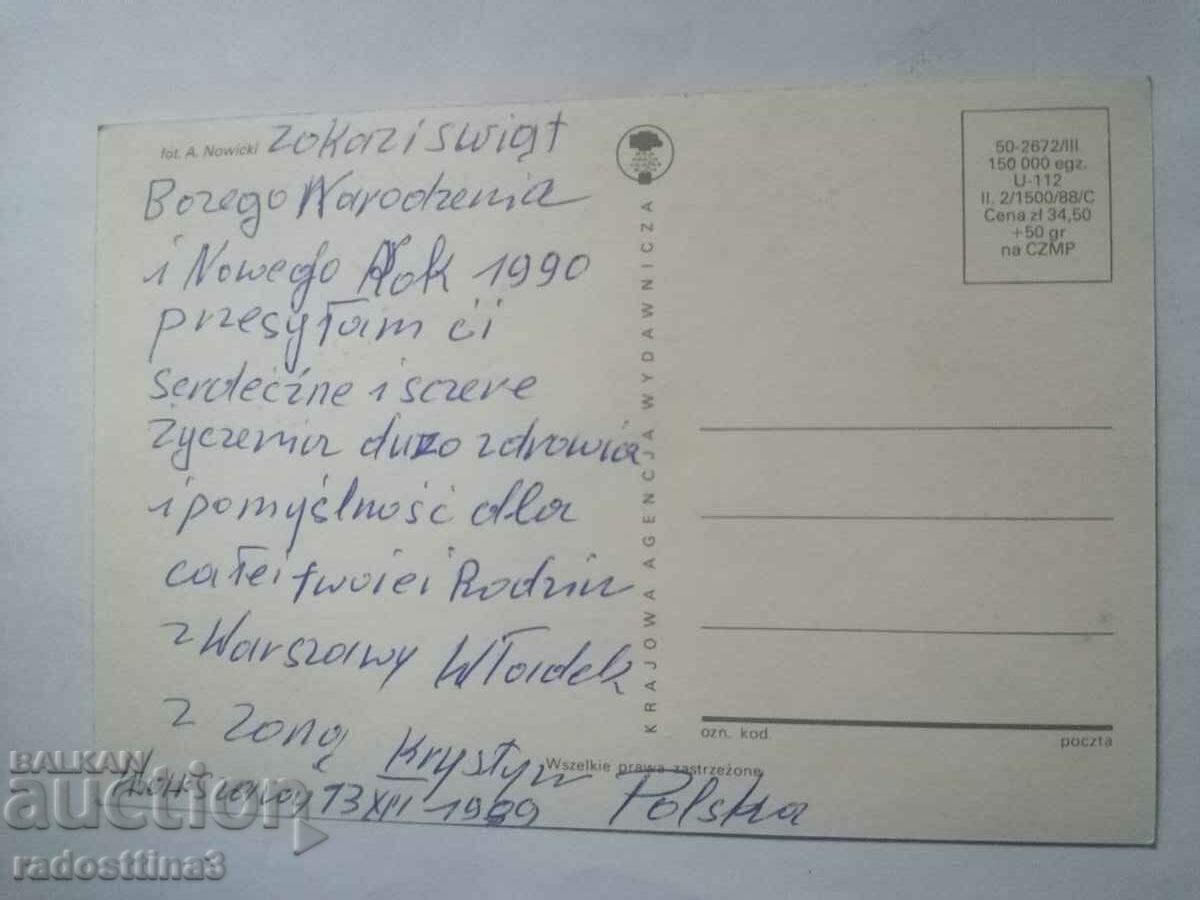 fot. A. Nowicki
zokazi swiąt
Bozego Narodzenia
i Nowego Rok 1990
przesyłam ci
serdeczne i sczere
życzenia duzo zdrowia
i pomyślność dla
całei twoiei Rodzin
z Warszawy Władek
z zoną Krystyn
13 XII 1989 Polska
KRAJOWA AGENCJA WYDAWNICZA
50-2672/III
150 000 egz.
U-112
II. 2/1500/88/C
Cena zł 34,50
+50 gr
na CZMP
ozn. kod.
poczta
Wszelkie prawa zastrzeżone
BALKAN
auction
radosttina3